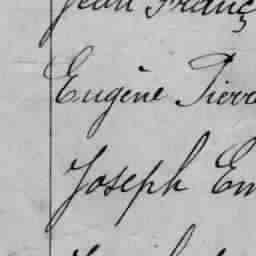 Jean Franç
Eugène Pierre
Joseph Em